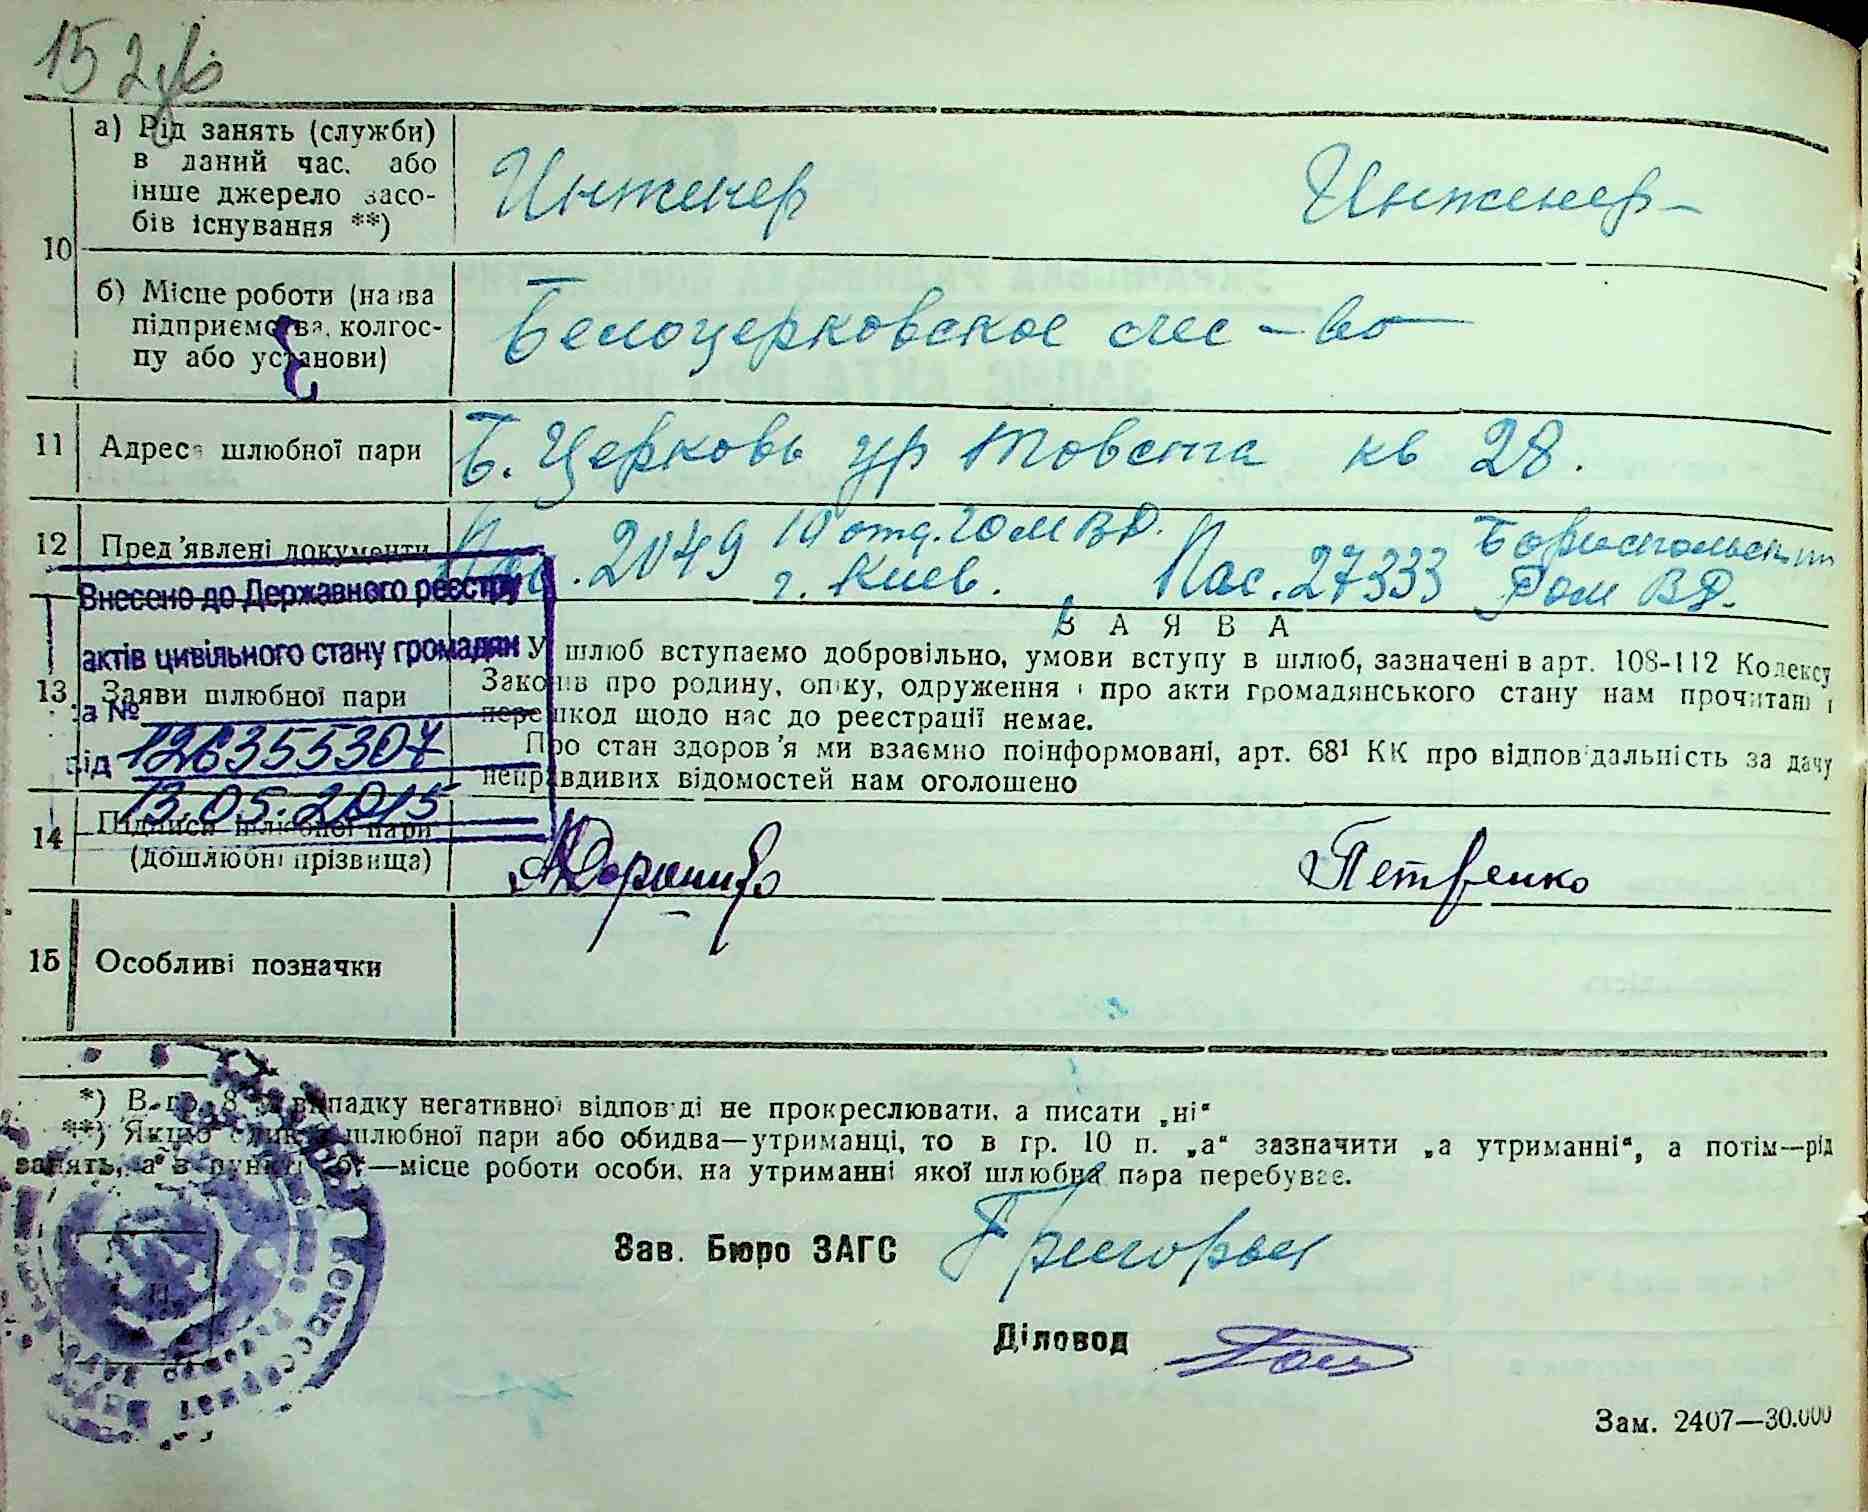 152
10
а) Рід занять (служби)
в даний час, або
інше джерело засо-
бів існування **)
Инженер Инженер
б) Місце роботи (назва
підприємства, колгос-
пу або установи)
Белоцерковское лес-во
11 Адреса шлюбної пари Б. Церковь ур Товста кв 28.
12 Пред'явлені документи Пас. 2049 10 отд. ГОМ ВД. г. Киев. Пас. 27333 Бориспольским РОМ ВД.
Внесено до Державного реєстру
актів цивільного стану громадян
за №
126355307
від
13.05.2015
ЗАЯВА
13 Заяви шлюбної пари
У шлюб вступаємо добровільно, умови вступу в шлюб, зазначені в арт. 108-112 Кодексу
Законів про родину, опіку, одруження і про акти громадянського стану нам прочитані і
перешкод щодо нас до реєстрації немає.
Про стан здоров'я ми взаємно поінформовані, арт. 68¹ КК про відповідальність за дачу
неправдивих відомостей нам оголошено
14 Підписи шлюбної пари
(дошлюбні прізвища)
Петренко
15 Особливі позначки
*) В гр. 8 у випадку негативної відповіді не прокреслювати, а писати „ні“
**) Якщо один з шлюбної пари або обидва—утриманці, то в гр. 10 п. „а“ зазначити „а утриманні“, а потім—рід
занять, а в пункті „б“—місце роботи особи, на утриманні якої шлюбна пара перебуває.
Зав. Бюро ЗАГС
Діловод
Зам. 2407—30.000